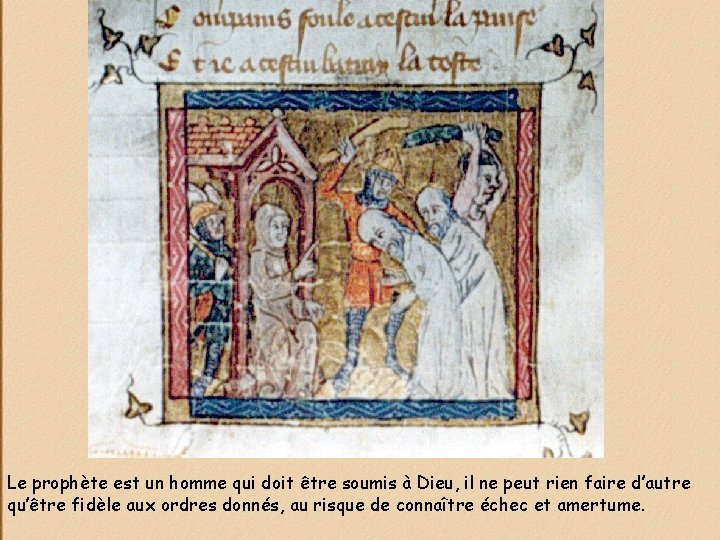 foule a cestui la
Et a cestui la teste
Le prophète est un homme qui doit être soumis à Dieu, il ne peut rien faire d’autre
qu’être fidèle aux ordres donnés, au risque de connaître échec et amertume.